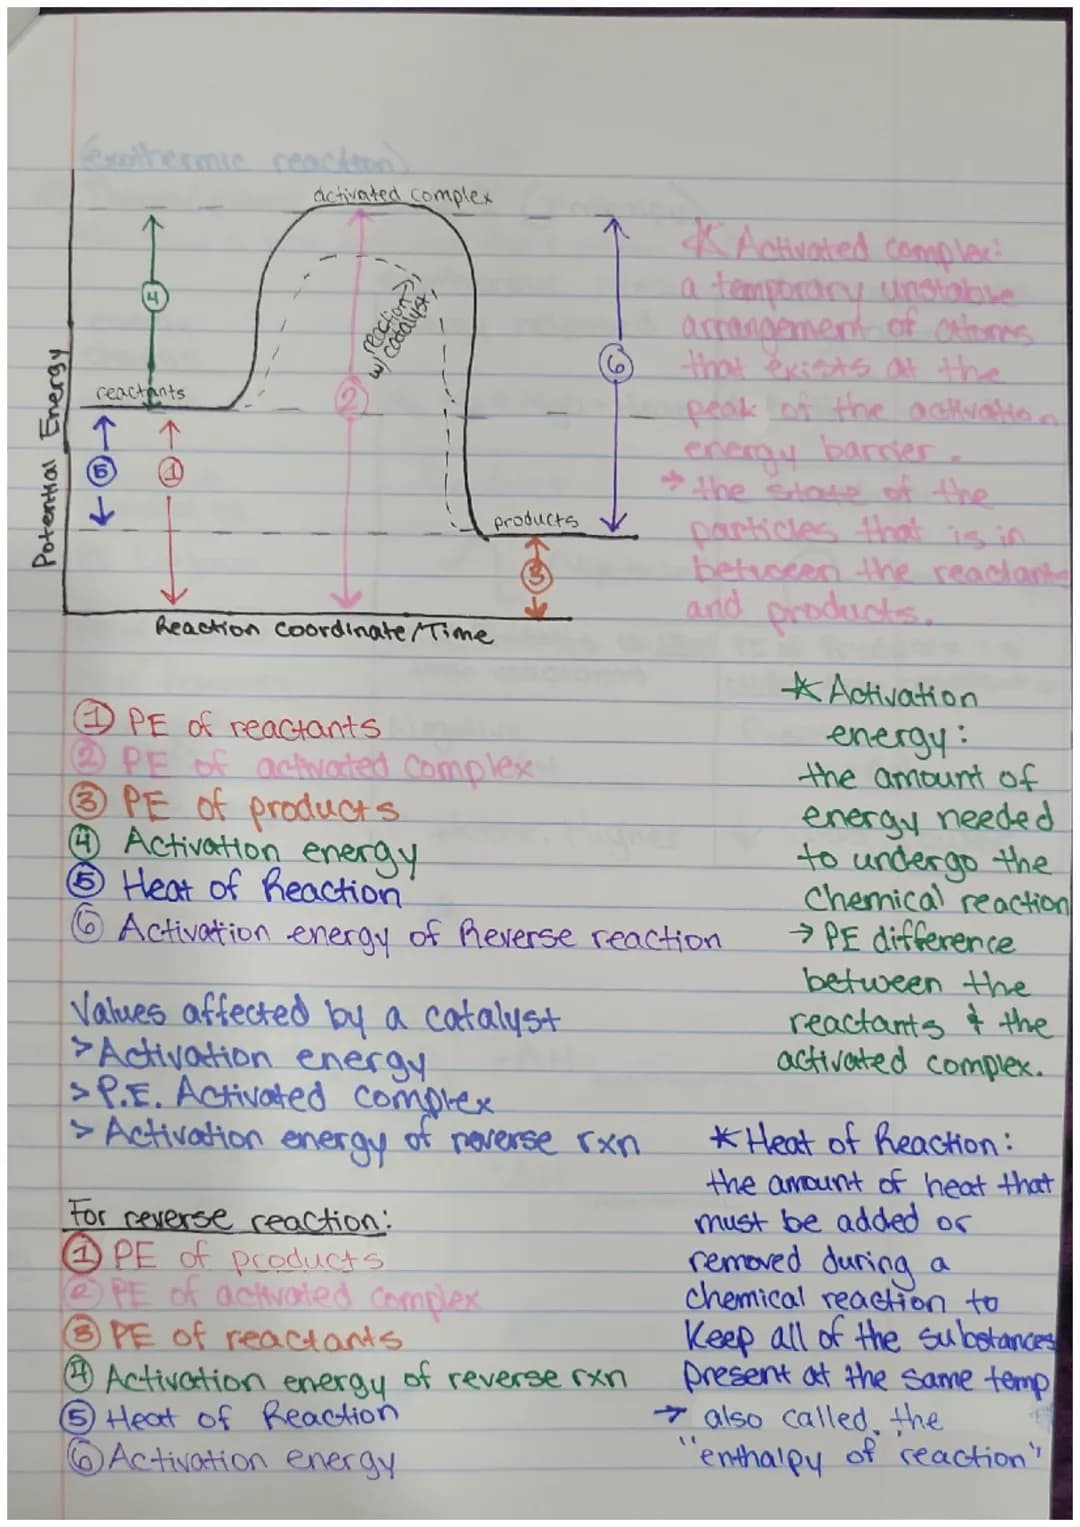 (exothermic reaction)
activated complex
4
reaction →
w/ catalyst
reactants
2
6
5
1
products
3
Potential Energy
Reaction Coordinate/Time
* Activated complex:
a temporary unstable
arrangement of atoms
that exists at the
peak of the activation
energy barrier.
→ the state of the
particles that is in
between the reactants
and products.
① PE of reactants
② PE of activated complex
③ PE of products
④ Activation energy
⑤ Heat of Reaction
⑥ Activation energy of Reverse reaction
* Activation
energy:
the amount of
energy needed
to undergo the
chemical reaction
→ PE difference
between the
reactants & the
activated complex.
Values affected by a catalyst
> Activation energy
> P.E. Activated complex
> Activation energy of reverse rxn
For reverse reaction:
① PE of products
② PE of activated complex
③ PE of reactants
④ Activation energy of reverse rxn
⑤ Heat of Reaction
⑥ Activation energy
* Heat of Reaction:
the amount of heat that
must be added or
removed during a
chemical reaction to
keep all of the substances
present at the same temp
→ also called the
"enthalpy of reaction"